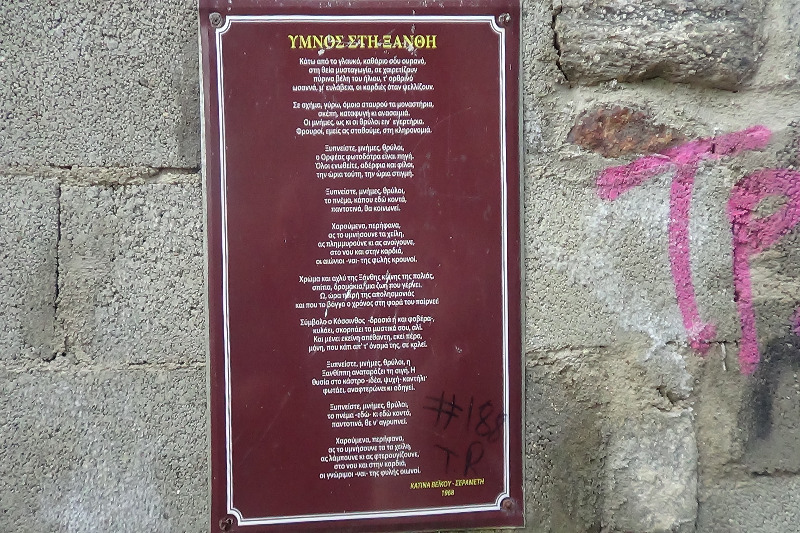 ΥΜΝΟΣ ΣΤΗ ΞΑΝΘΗ
Κάτω από το γλαυκό, καθάριο σου ουρανό,
στη θεία μυσταγωγία, σε χαιρετίζουν
πύρινα βέλη του ήλιου, τ' ορθρινό
ωσαννά, μ' ευλάβεια, οι καρδιές όταν ψελλίζουν.
Σε σχήμα, γύρω, όμοιο σταυρού τα μοναστήρια,
σκέπη, καταφυγή κι ανασαιμιά.
Οι μνήμες, ως κι οι θρύλοι ειν' εγερτήρια.
Φρουροί, εμείς ας σταθούμε, στη κληρονομιά.
Ξυπνείστε, μνήμες, θρύλοι,
ο Ορφέας φωτοδότρα είναι πηγή.
Όλοι ενωθείτε, αδέρφια και φίλοι,
την ώρα τούτη, την ώρα στιγμή.
Ξυπνείστε, μνήμες, θρύλοι,
το πνέμα, κάπου εδώ κοντά,
παντοτινά, θα κοινωνεί.
Χαρούμενα, περήφανα,
ας το υμνήσουνε τα χείλη,
ας πλημμυρούνε κι ας ανοίγουνε,
στο νου και στην καρδιά,
οι αιώνιοι -ναι- της φυλής κρουνοί.
Χρώμα και αχλύ της Ξάνθης κείνης της παλιάς,
σπίτια, δρομάκια, μια ζωή που γέρνει.
Ω, ώρα πικρή της απολησμονιάς
και που το βογκο ο χρόνος στη φορά του παίρνει!
Σύμβολο ο Κόσσινθος -δροσιά ή και φοβέρα-,
κυλάει, σκορπάει τα μυστικά σου, αλί.
Και μένει εκείνη απέθαντη, εκεί πέρα,
μόνη, που κάτι απ' τ' όνομα της, σε καλεί.
Ξυπνείστε, μνήμες, θρύλοι, η
Ξανθίππη αναταράζει τη σιγή. Η
θυσία στο κάστρο -ιδέα, ψυχή- καντήλι'
φωτάει, αναφτερώνει κι οδηγεί.
Ξυπνείστε, μνήμες, θρύλοι,
το πνέμα -εδώ- κι εδώ κοντά,
παντοτινά, θε ν' αγρυπνεί.
Χαρούμενα, περήφανα,
ας το υμνήσουνε τα τα χείλη,
ας λάμπουνε κι ας φτερουγίζουνε,
στο νου και στην καρδιά,
οι γνώριμοι -ναι- της φυλής οιωνοί.
ΚΑΤΙΝΑ ΒΕΪΚΟΥ - ΣΕΡΑΜΕΤΗ
1968
#188
TR
TP